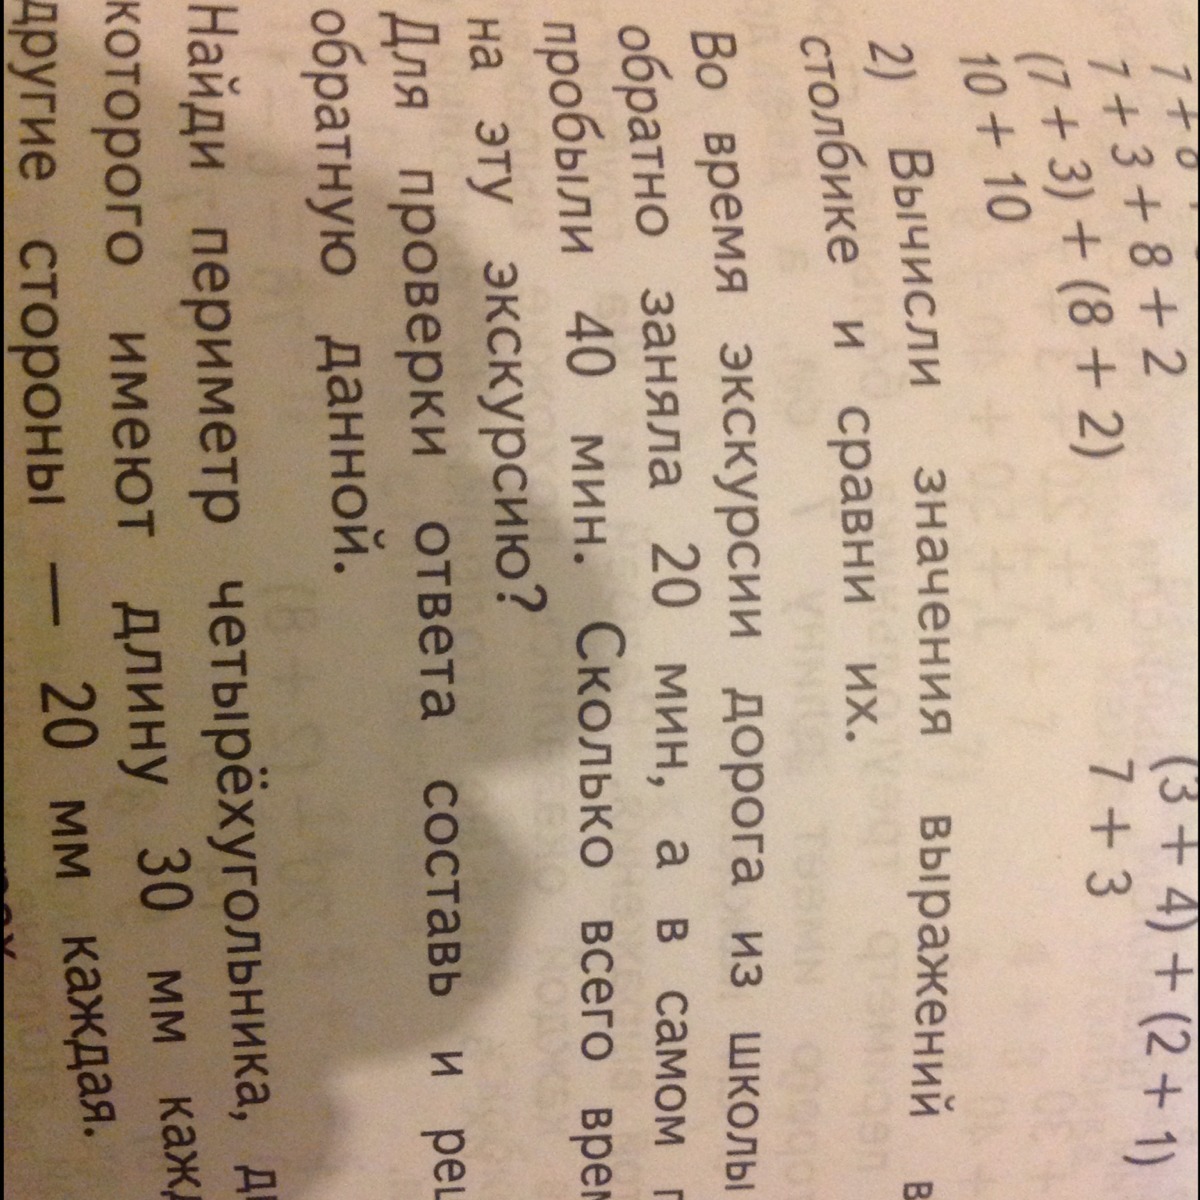 7 + 3 + 8 + 2
(3 + 4) + (2 + 1)
(7 + 3) + (8 + 2)
7 + 3
10 + 10
2) Вычисли значения выражений в
столбике и сравни их.
Во время экскурсии дорога из школы
обратно заняла 20 мин, а в самом
пробыли 40 мин. Сколько всего
на эту экскурсию?
Для проверки ответа составь и
обратную данной.
Найди периметр четырёхугольника,
которого имеют длину 30 мм
другие стороны — 20 мм каждая.